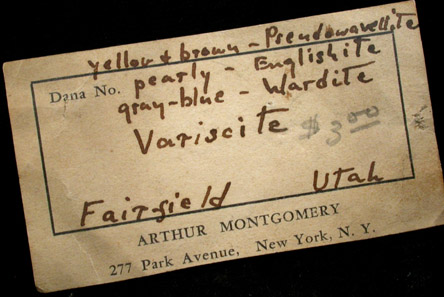 yellow & brown - Pseudowavellite
pearly - Englishite
Dana No.
gray-blue - Wardite
Variscite $3.00
Fairfield Utah
ARTHUR MONTGOMERY
277 Park Avenue, New York, N. Y.